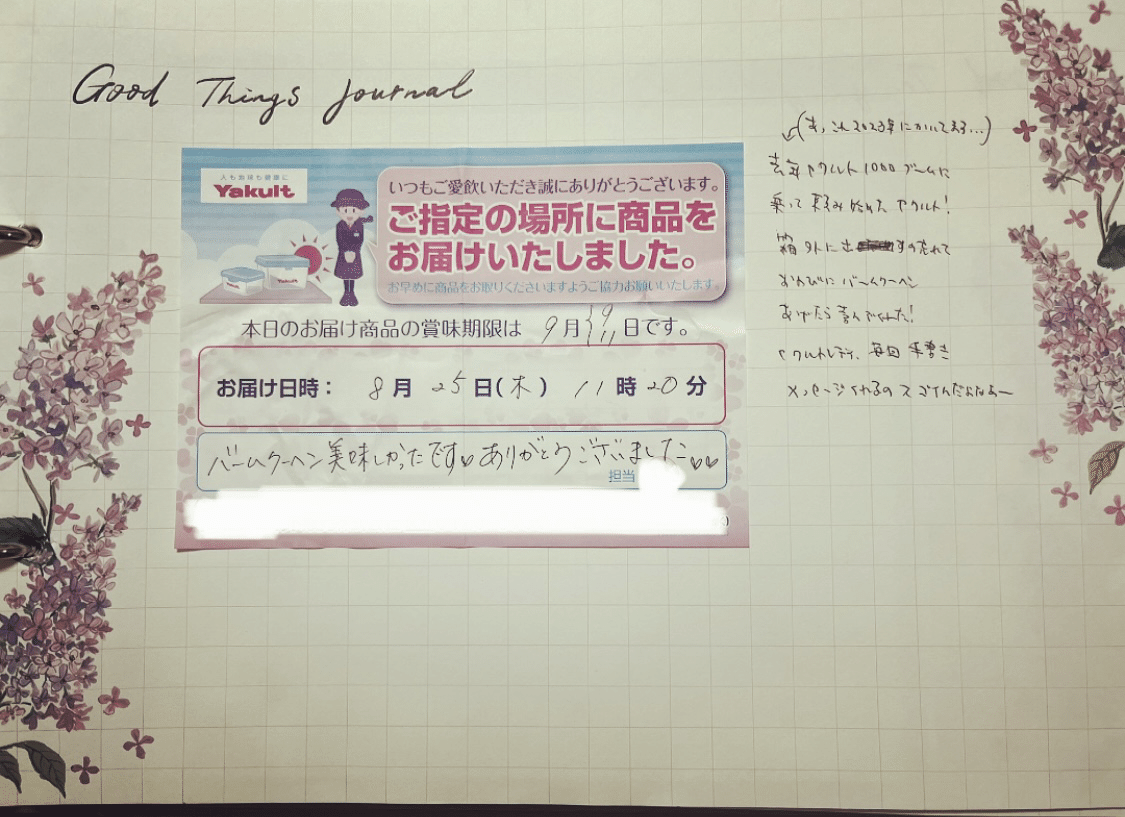 Good Things Journal
人も地球も健康に
Yakult
いつもご愛飲いただき誠にありがとうございます。
ご指定の場所に商品を
お届けいたしました。
お早めに商品をお取りくださいますようご協力お願いいたします。
Yakult
本日のお届け商品の賞味期限は 9月 19 11 日です。
お届け日時： 8月 25日(木) 11時20分
バームクーヘン美味しかったです♡ありがとうございました♡♡
担当
(あ、これ2023年にかいてます…)
去年ヤクルト1000ブームに
乗って飲み始めたヤクルト!
箱外に出すの忘れて
おわびにバームクーヘン
あげたら喜んでくれた!
ヤクルトレディ、毎回手書き
メッセージくれるのスゴイんだよなぁー